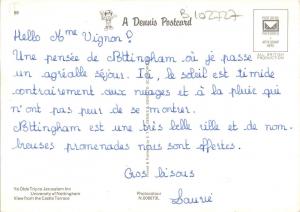 89
A Dennis Postcard
B 102727
Hello Mme Vignon!
Une pensée de Nottingham où je passe
un agréable séjour. Ici, le soleil est timide
contrairement aux nuages et à la pluie qui
n'ont pas peur de se montrer.
Nottingham est une très belle ville et de nom-
breuses promenades nous sont offertes.
Gros bisous
Ye Olde Trip to Jerusalem Inn
University of Nottingham
View from the Castle Terrace
Photocolour
N.00867SL